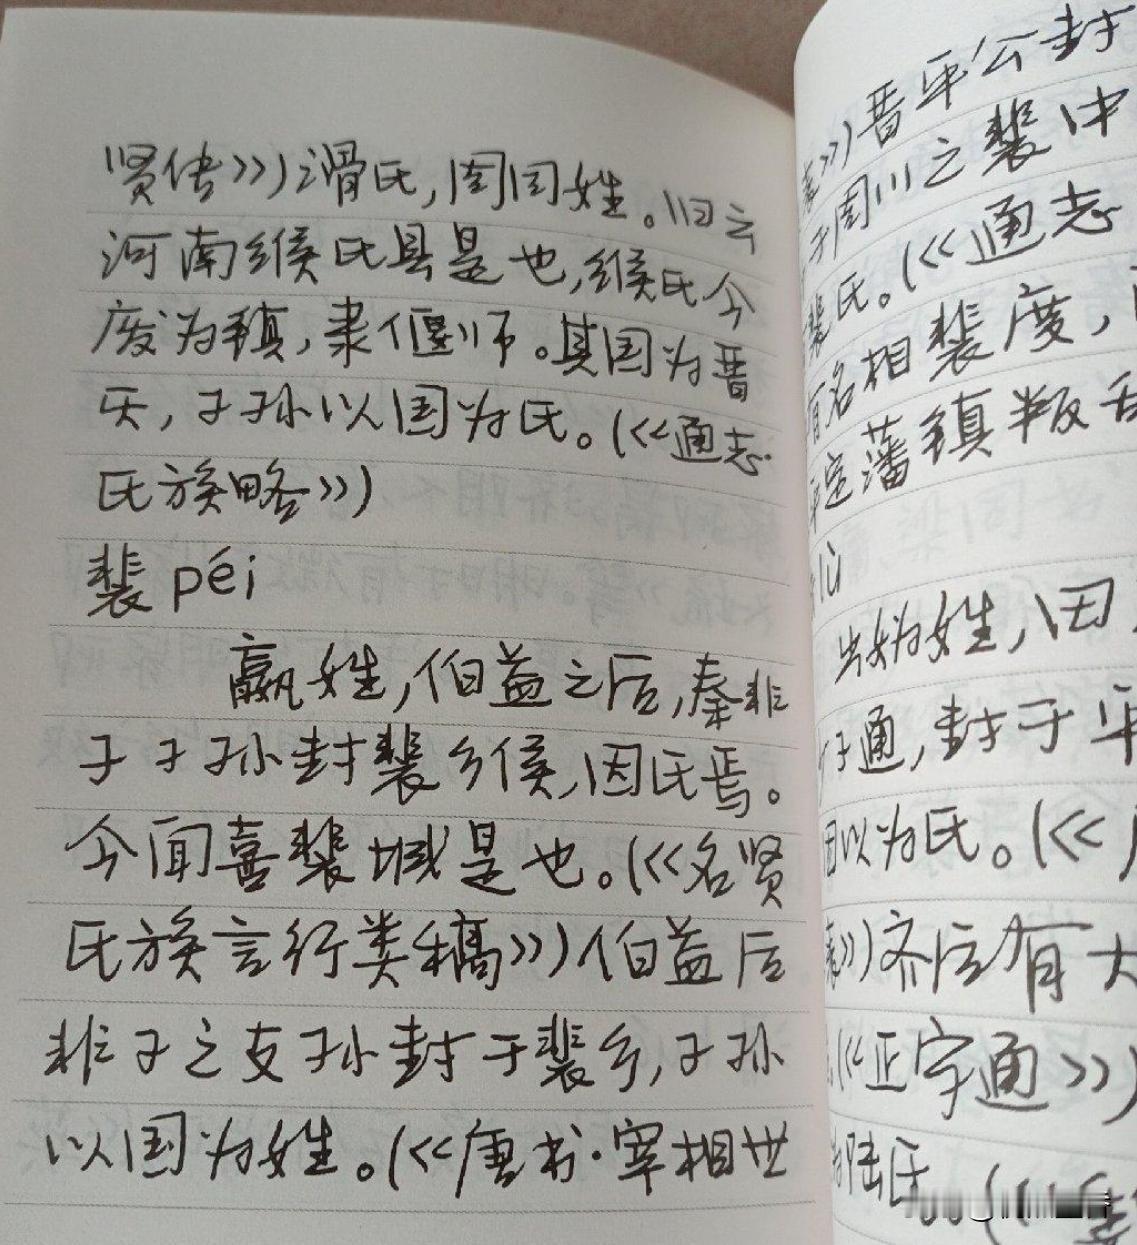 贤传》)滑氏,周同姓。旧云
河南缑氏县是也,缑氏今
废为镇,隶偃师。其国为晋
灭,子孙以国为氏。(《通志
氏族略》)
裴 péi
嬴姓,伯益之后,秦非
子子孙封裴乡侯,因氏焉。
今闻喜裴城是也。(《名贤
氏族言行类稿》)伯益后
非子之支孙封于裴乡,子孙
以国为姓。(《唐书·宰相世
》)晋平公封
于周川之裴中
裴氏。(《通志
有名相裴度,
定藩镇叛乱
lù
出妫姓,因
子通,封于平
因以为氏。(《
》)齐后有大
(《正字通》)
陆氏。(《